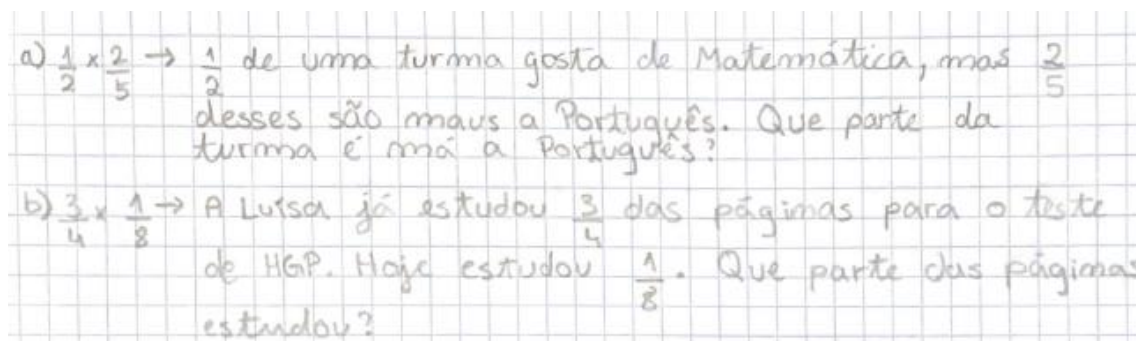 a) 1/2 × 2/5 → 1/2 de uma turma gosta de Matemática, mas 2/5
desses são maus a Português. Que parte da
turma é má a Português?
b) 3/4 × 1/8 → A Luísa já estudou 3/4 das páginas para o teste
de HGP. Hoje estudou 1/8. Que parte das páginas
estudou?